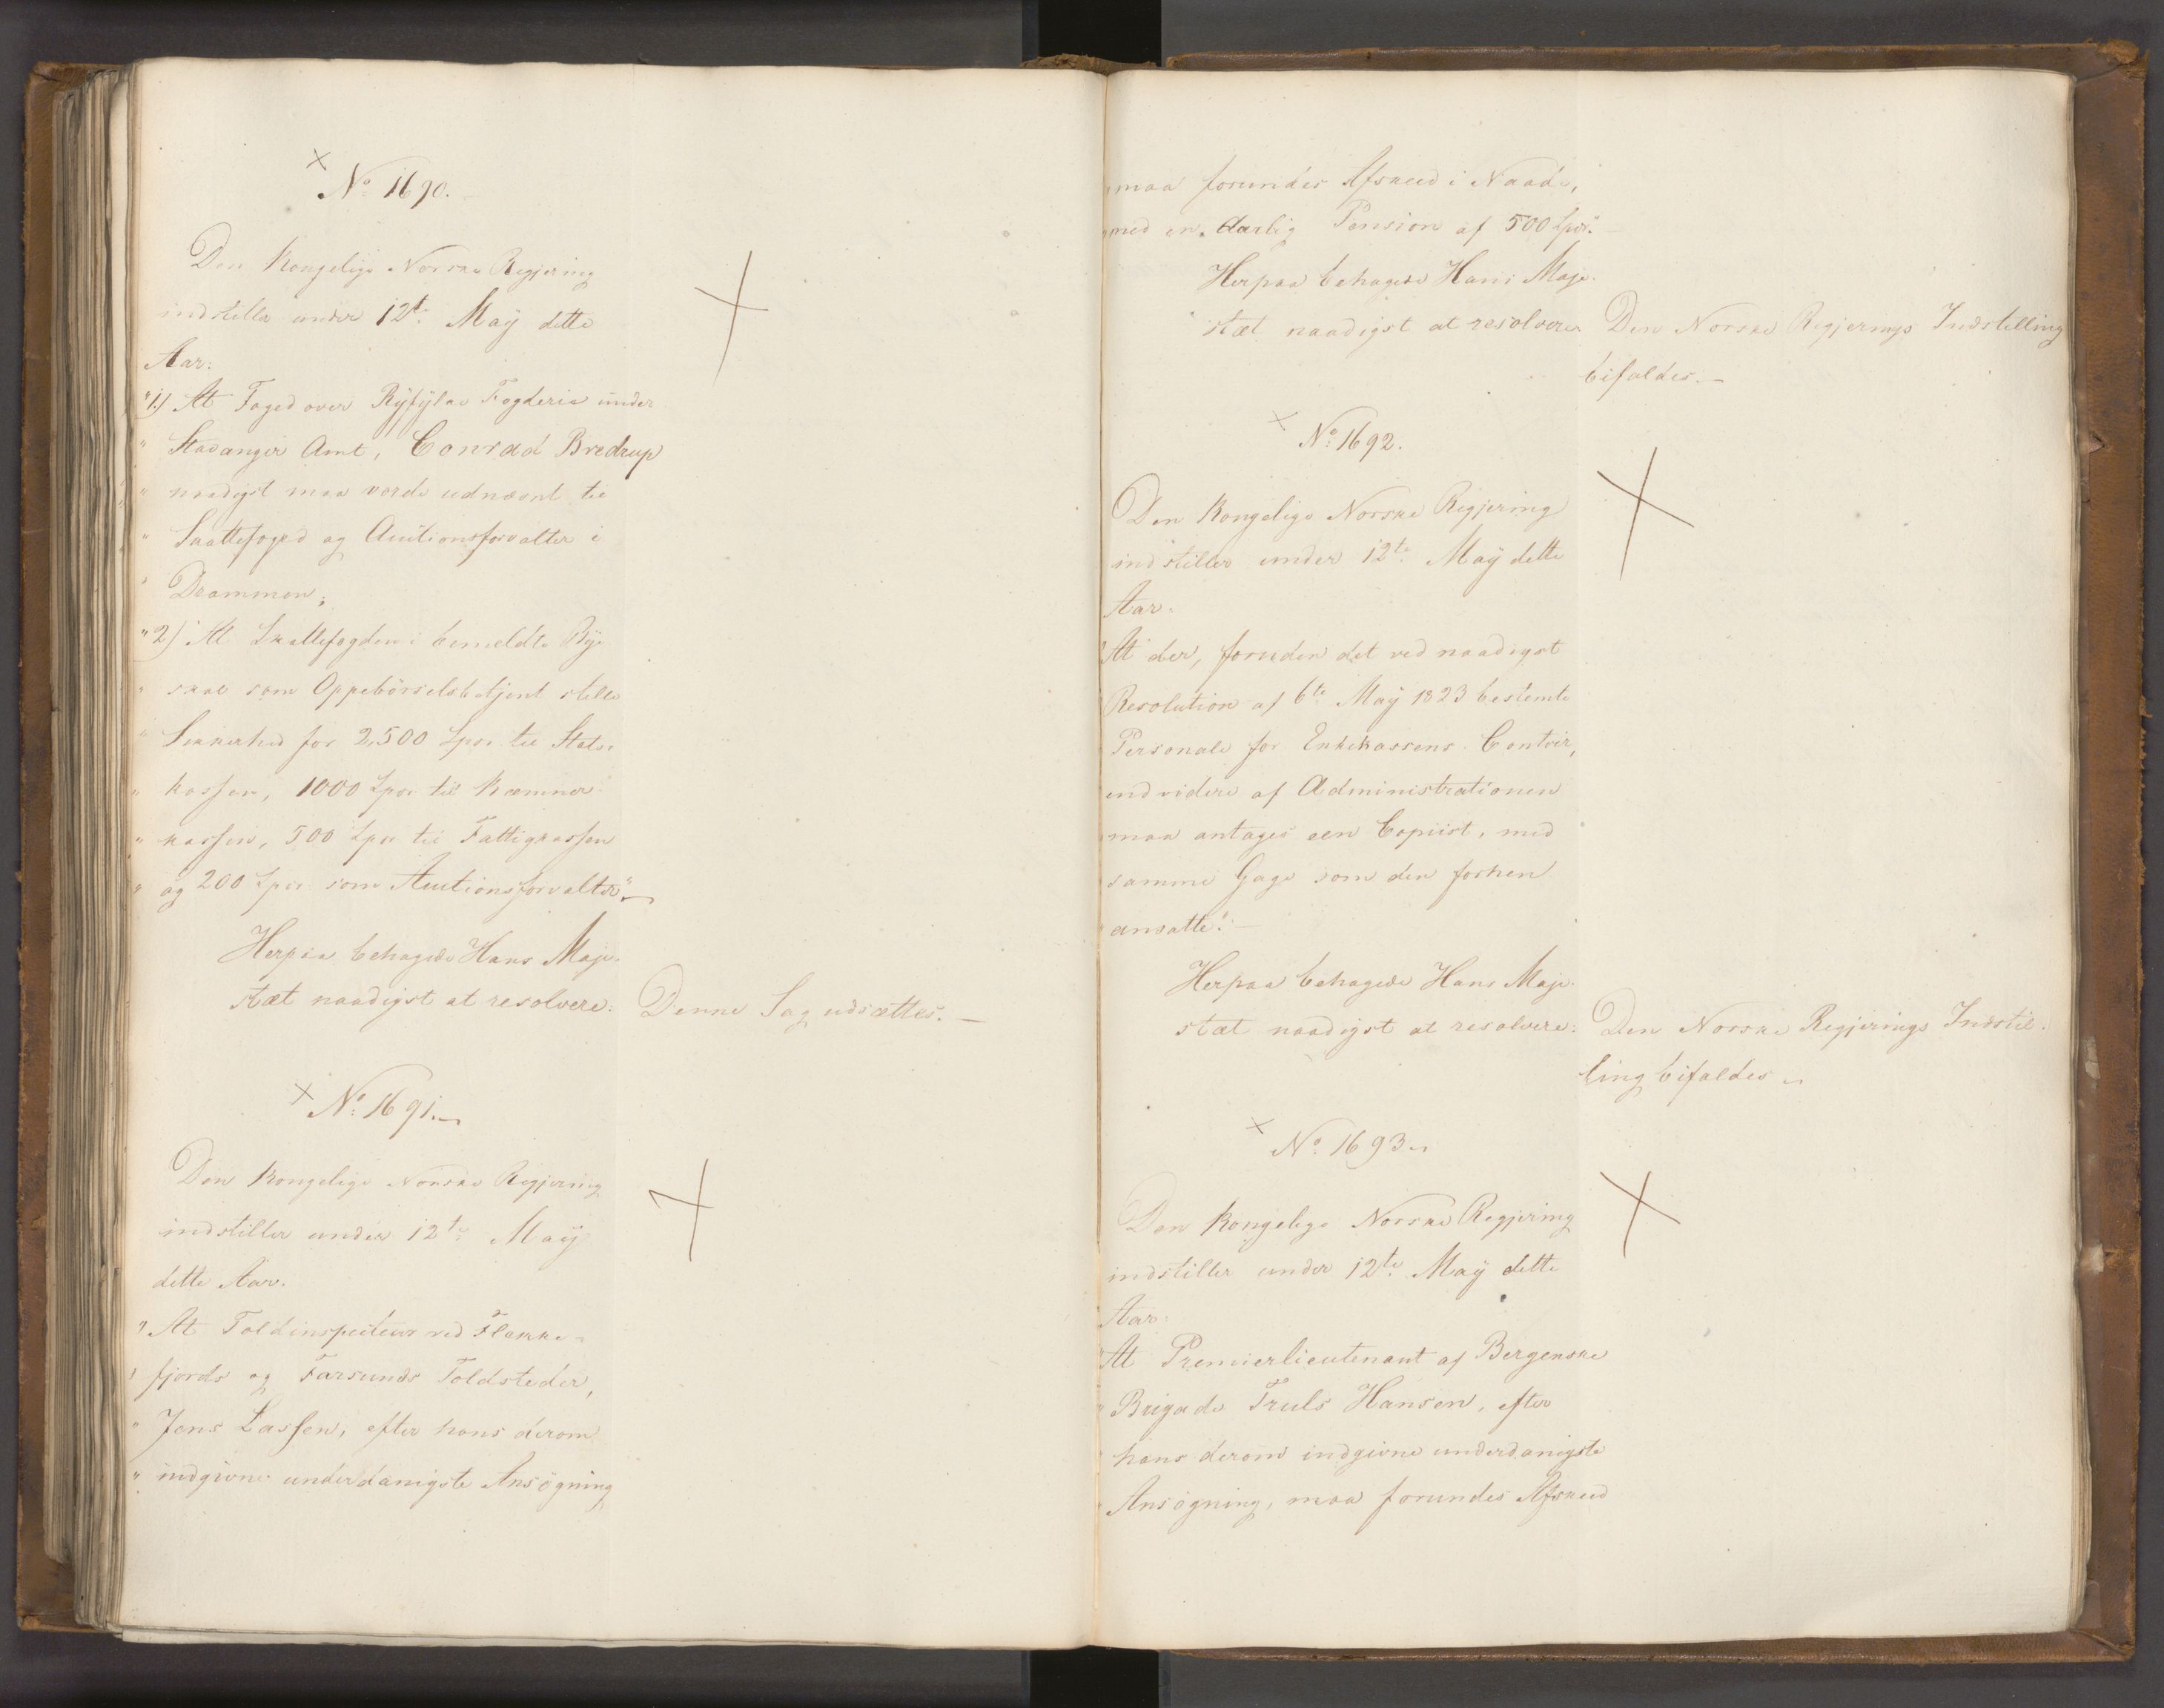 № 1690.
Den Kongelige Norske Regjering
indstiller under 12te May dette
Aar:
"1.) At Foged over Ryfylke Fogderie under
" Stavanger Amt, Conrad Bredrup
" naadigst maa vorde udnævnt til
" Skattefoged og Auctionsforvalter i
" Drammen;
"2) At Skattefogden i bemeldte Bye
" skal som Oppebörselsbetjent stille
" Sikkerhed for 2,500 Spdr til Stats-
" kassen, 1000 Spdr til Kæmner-
" kassen, 500 Spdr til Fattigkassen
" og 200 Spdr som Auctionsforvalter".
Herpaa behagede Hans Maje-
stæt naadigst at resolvere: Denne Sag udsættes.
№ 1691.
Den Kongelige Norske Regjering
indstiller under 12te May
dette Aar.
" At Toldinspecteur ved Flekke-
" fjords og Farsunds Toldsteder,
" Jens Lassen, efter hans derom
" indgivne underdanigste Ansögning
" maa forundes Afskeed i Naade,
" med en aarlig Pension af 500 Spdr."
Herpaa behagede Hans Maje-
stæt naadigst at resolvere Den Norske Regjerings Indstilling
bifaldes.
№ 1692.
Den Kongelige Norske Regjering
indstiller under 12te May dette
Aar.
" At der, foruden det ved naadigst
Resolution af 6te May 1823 bestemte
Personale for Enkekassens Contoir,
endvidere af Administrationen
maa antages een Copiist, med
samme Gage som den forhen
" ansatte".
Herpaa behagede Hans Maje-
stæt naadigst at resolvere: Den Norske Regjerings Indstil-
ling bifaldes
№ 1693
Den Kongelige Norske Regjering
indstiller under 12te May dette
Aar.
" At Premierlieutenant af Bergenske
" Brigade Truls Hansen, efter
" hans derom indgivne underdanigste
" Ansögning, maa forundes Afskeed